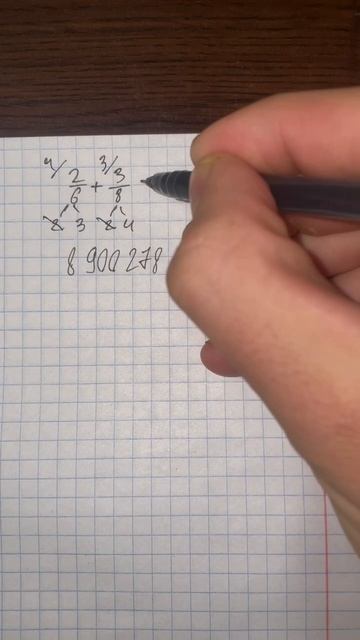 4/ 2/6 + 3/ 3/8
2 3 2 4
8 900 278